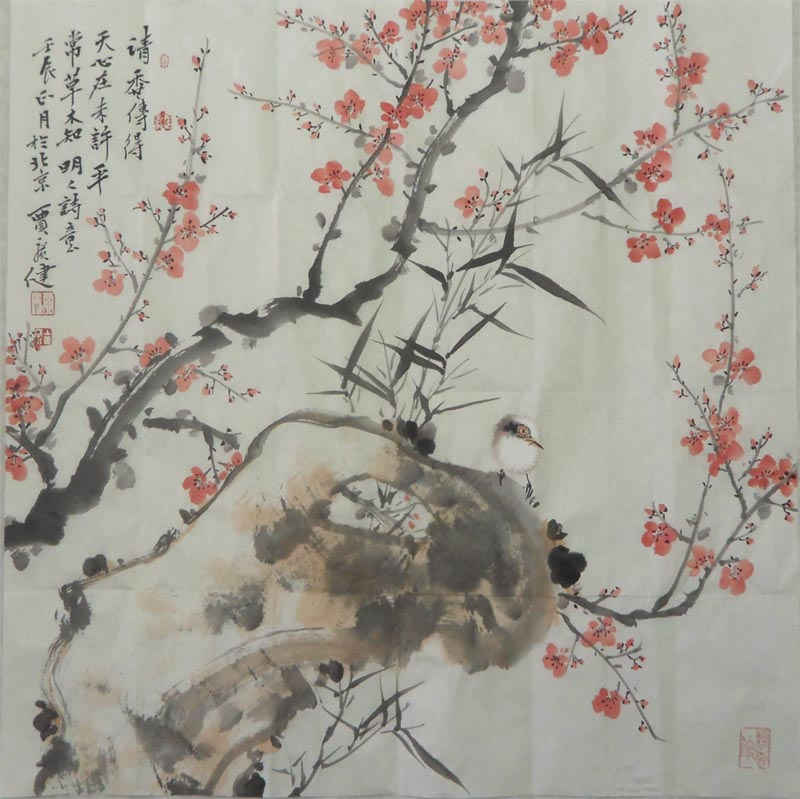 清香傳得
天心在未許平
常草木知 明人詩意
壬辰正月於北京 賈廣健